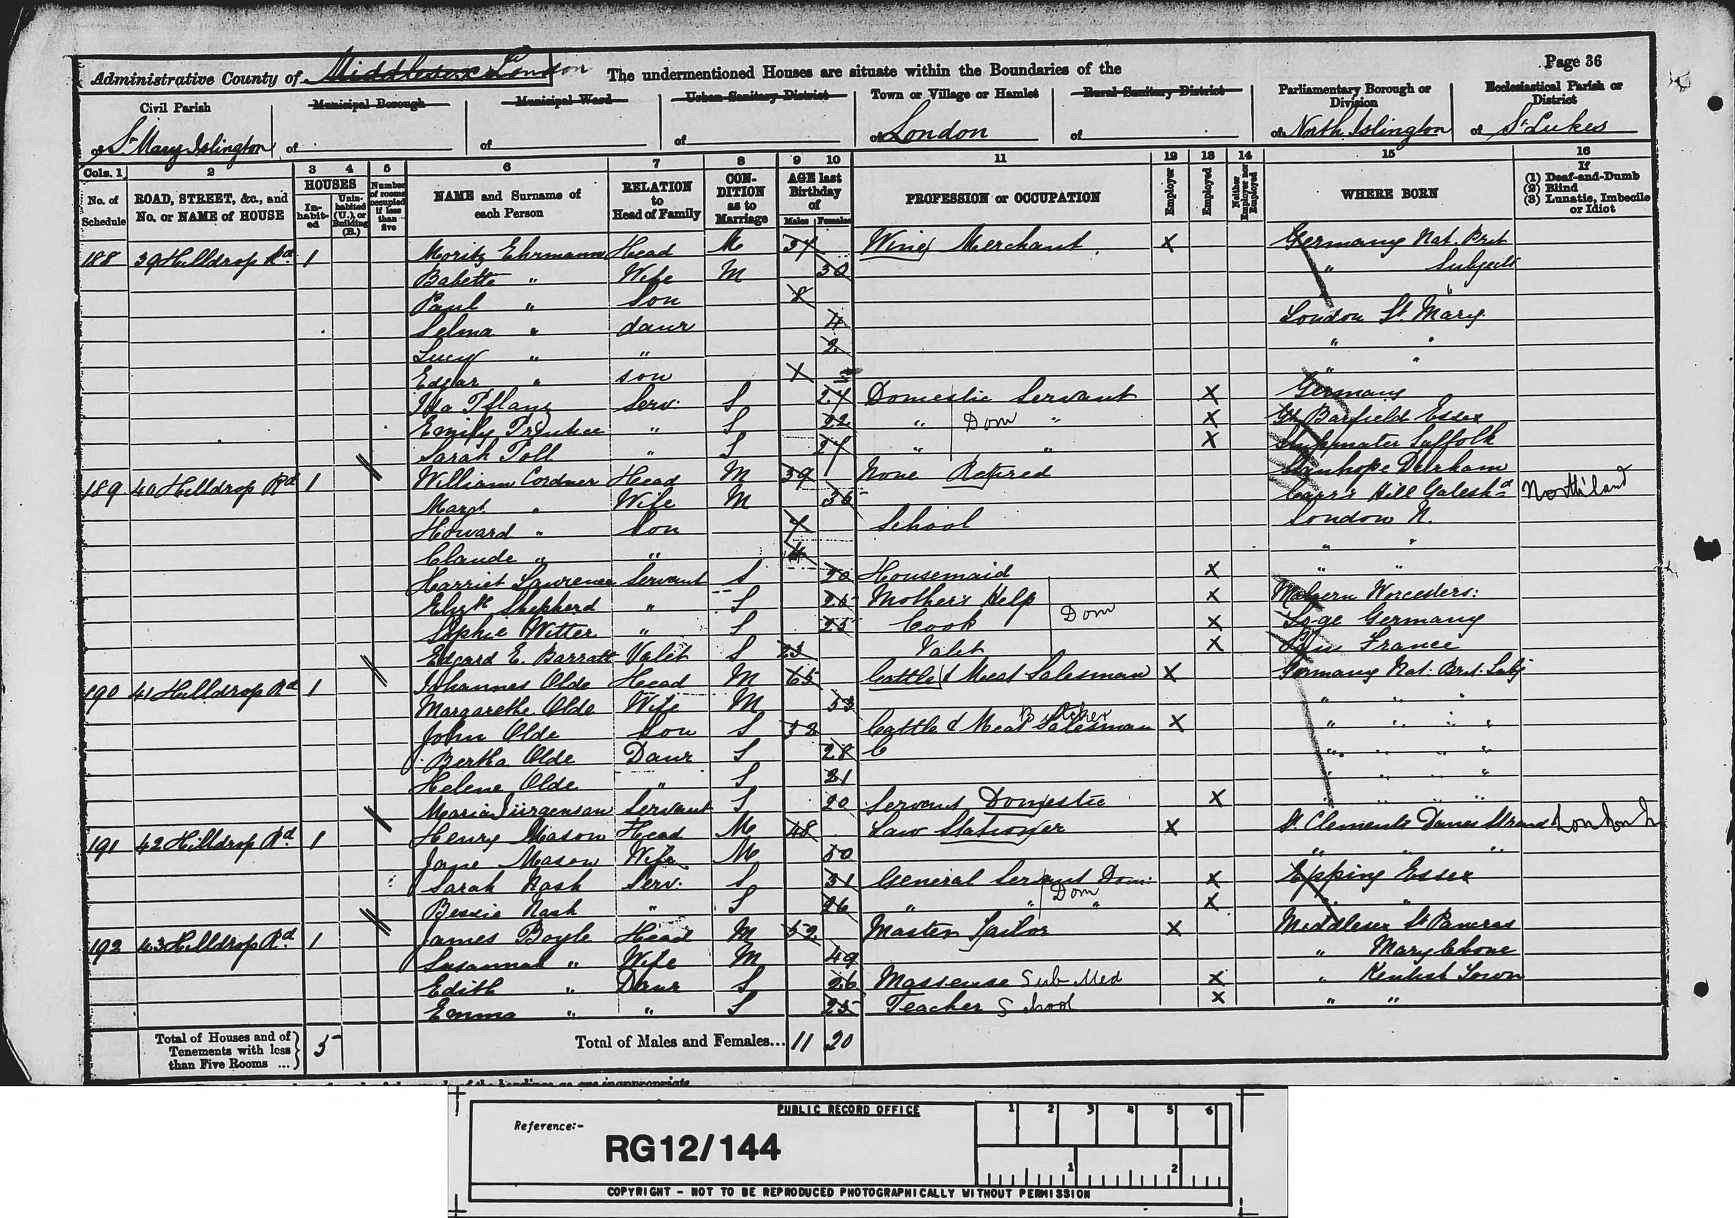 Page 36
Administrative County of Middlesex London The undermentioned Houses are situate within the Boundaries of the
Civil Parish Municipal Borough Municipal Ward Urban Sanitary District Town or Village or Hamlet Rural Sanitary District Parliamentary Borough or Division Ecclesiastical Parish or District
of St Mary Islington of of of of London of of North Islington of St Lukes
Cols. 1 2 3 4 5 6 7 8 9 10 11 12 13 14 15 16
No. of Schedule ROAD, STREET, &c., and No. or NAME of HOUSE HOUSES In-habit-ed Unin-habited (U.), or Building (B.) Number of rooms occupied if less than five NAME and Surname of each Person RELATION to Head of Family CON-DITION as to Marriage AGE last Birthday of Males Females PROFESSION or OCCUPATION Employer Employed Neither Employer nor Employed WHERE BORN If (1) Deaf-and-Dumb (2) Blind (3) Lunatic, Imbecile or Idiot
188 39 Hilldrop Rd 1 Moritz Ehrmann Head M 37 Wine Merchant X Germany Nat. Brit
Babette " Wife M 30 " Subjects
Paul " Son 8 "
Selma " daur 4 London St Mary
Lucy " " 2 " "
Edgar " son " "
Ida Pflanz Serv. S 27 Domestic Servant X Germany
Emily Prentice " S 22 " Dom " X Gt Barfield Essex
Sarah Poll " S 27 " " X Suffolk
189 40 Hilldrop Rd 1 William Cordner Head M 39 None Retired Stanhope Durham
Margt " Wife M 36 Carr's Hill Galeshd Northland
Howard " Son 7 School London N.
Claude " " 4 " "
Harriet Laurence Servant S 20 Housemaid X " "
Elizth Shepherd " S 26 Mothers Help X Malvern Worcesters:
Sophie Witter " S 25 Cook Dom X Germany
Edgard E. Barratt Valet S 23 Valet X France
190 41 Hilldrop Rd 1 Johannes Olde Head M 65 Cattle & Meat Salesman X Germany Nat. Brit. Subj
Margarethe Olde Wife M 53 " " "
John Olde Son S 32 Cattle & Meat Salesman Butcher X " " " "
Bertha Olde Daur S 28 C " " " "
Helene Olde " S 21 " " "
Maria Jürgensen Servant S 20 Servant Domestic X " " " "
191 42 Hilldrop Rd 1 Henry Mason Head M 48 Law Stationer X St. Clements Danes Strand London
Jane Mason Wife M 50 " " "
Sarah Nash Serv. S 31 General Servant Dom: X Epping Essex
Bessie Nash " S 26 " " Dom " X " "
192 43 Hilldrop Rd 1 James Boyle Head M 52 Master Tailor X Middlesex St Pancras
Susannah " Wife M 49 " Marylebone
Edith " Daur S 26 Masseuse Sub Med X " Kentish Town
Emma " " S 25 Teacher School X " "
Total of Houses and of Tenements with less than Five Rooms ... 5 Total of Males and Females... 11 20
PUBLIC RECORD OFFICE 1 2 3 4 5 6
Reference:-
RG12/144
1 2
COPYRIGHT - NOT TO BE REPRODUCED PHOTOGRAPHICALLY WITHOUT PERMISSION